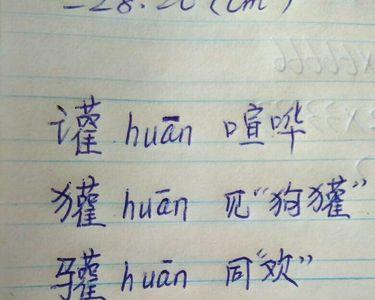 =28.26(cm²)
讙 huān 喧哗
獾 huān 见“狗獾”
驩 huān 同“欢”